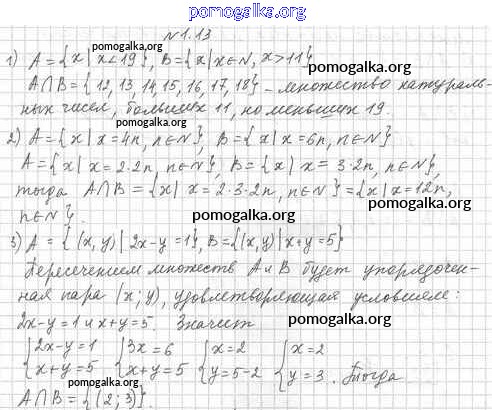 pomogalka.org
№1.13
1) A = {x | x<19}, B = {x | x∈N, x>11}
pomogalka.org
pomogalka.org
A∩B = {12, 13, 14, 15, 16, 17, 18} – множество натураль-
ных чисел, больших 11, но меньших 19.
pomogalka.org
2) A = {x | x=4n, n∈N}, B = {x | x=6n, n∈N}
A = {x | x = 2·2n, n∈N}, B = {x | x = 3·2n, n∈N},
тогда A∩B = {x | x = 2·3·2n, n∈N} = {x | x=12n,
n∈N}.
pomogalka.org
pomogalka.org
3) A = {(x, y) | 2x-y=1}, B={(x, y) | x+y=5}
Пересечением множеств A и B будет упорядочен-
ная пара (x; y), удовлетворяющая условиям:
2x-y=1 и x+y=5. Значит
pomogalka.org
{2x-y=1 {3x=6 {x=2 {x=2
x+y=5 x+y=5 y=5-2 y=3. Тогда
pomogalka.org
A∩B = {(2; 3)}.